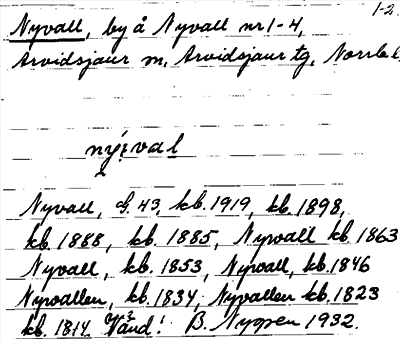 1-2.
Nyvall, by å Nyvall nr 1-4,
Arvidsjaur sn, Arvidsjaur tg, Norrb. l.
nyi̯val
Nyvall, G. 43, kb. 1919, kb. 1898,
kb. 1888, kb. 1885, Nywall kb. 1863
Nyvall, kb. 1853, Nywall, kb. 1846
Nywallen, kb. 1834, Nyvallen kb. 1823
kb. 1814. Vänd! B. Nyssen 1932.